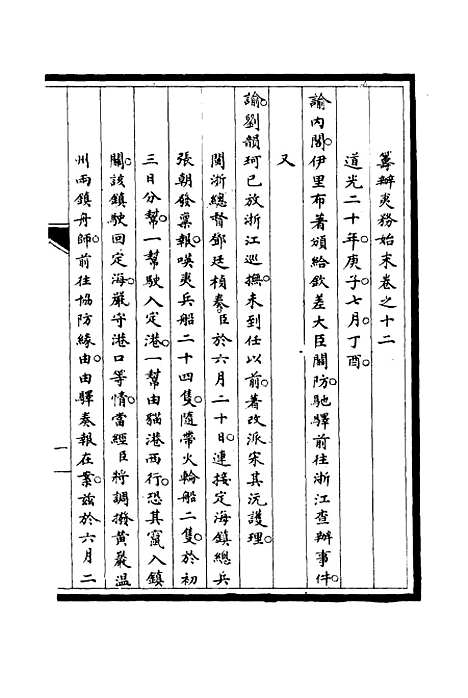 籌辦夷務始末卷之十二
道光二十年庚子七月丁酉。
諭內閣。伊里布著頒給欽差大臣關防。馳驛前往浙江查辦事件。
又
諭。劉韻珂已放浙江巡撫。未到任以前。著改派宋其沅護理。
閩浙總督鄧廷楨奏。臣於六月二十日。連接定海鎮總兵
張朝發稟報。㗆夷兵船二十四隻。隨帶火輪船二隻。於初
三日分幫。一幫駛入定港。一幫由貓港西行。恐其竄入鎮
關。該鎮駛回定海。嚴守港口等情。當經臣將調撥黃巖溫
州兩鎮舟師。前往協防緣由。由驛奏報在案。茲於六月二
一